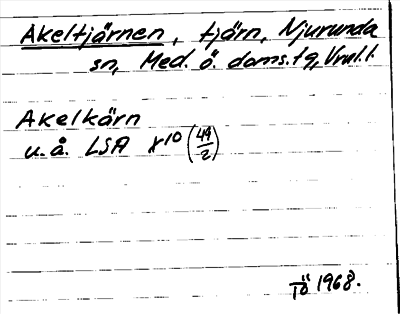 Akeltjärnen, tjärn, Njurunda
sn, Med. ö. doms.tg, Vnl.l.
Akelkärn
u.å. LSA X10 (49/2)
TÖ 1968.